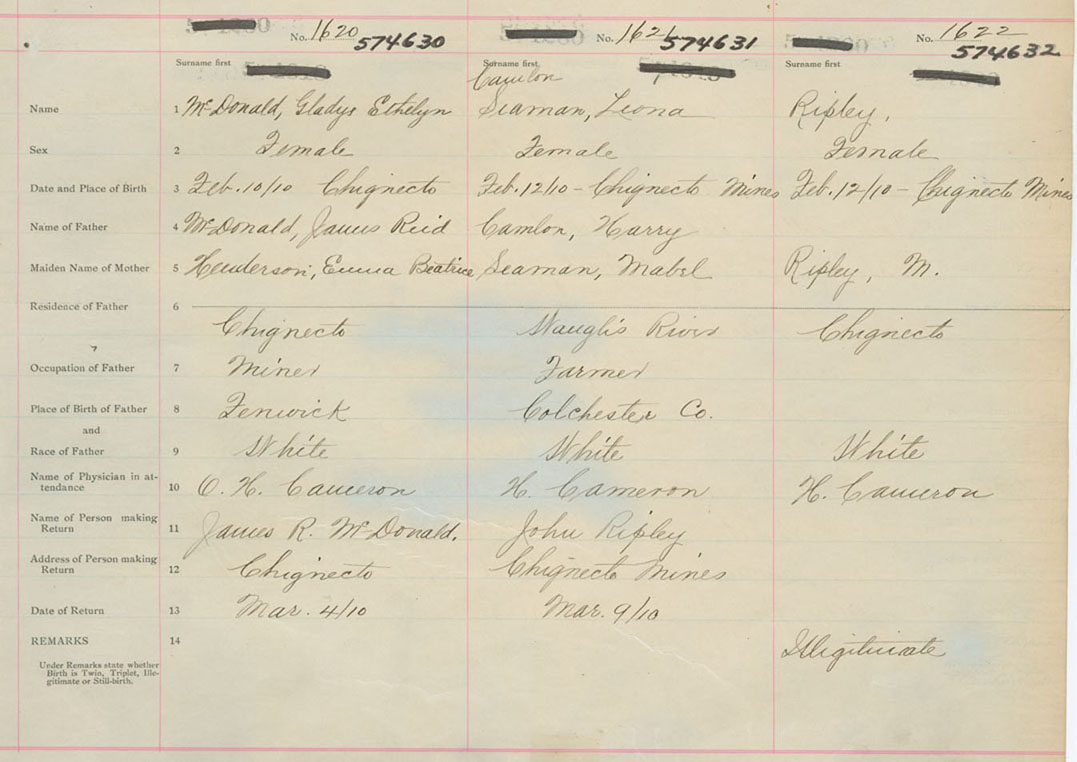 No. 1620 574630 No. 1621 574631 No. 1622 574632
Surname first Surname first Surname first
Camlon
Name 1 McDonald, Gladys Ethelyn Seaman, Leona Ripley,
Sex 2 Female Female Female
Date and Place of Birth 3 Feb. 10/10 Chignecto Feb. 12/10 - Chignecto Mines Feb. 12/10 - Chignecto Mines
Name of Father 4 McDonald, James Reid Camlon, Harry
Maiden Name of Mother 5 Henderson, Emma Beatrice Seaman, Mabel Ripley, M.
Residence of Father 6
Chignecto Waugh's River Chignecto
Occupation of Father 7 Miner Farmer
Place of Birth of Father 8 Fenwick Colchester Co.
and
Race of Father 9 White White White
Name of Physician in at-
tendance 10 O. H. Cameron H. Cameron H. Cameron
Name of Person making
Return 11 James R. McDonald. John Ripley
Address of Person making
Return 12 Chignecto Chignecto Mines
Date of Return 13 Mar. 4/10 Mar. 9/10
REMARKS 14 Illigitimate
Under Remarks state whether
Birth is Twin, Triplet, Ille-
gitimate or Still-birth.